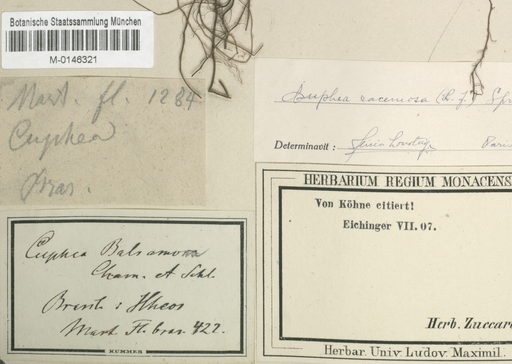 Botanische Staatssammlung München
M-0146321
Mart. fl. 1284
Cuphea
Bras.
Cuphea racemosa (L. f.) Spr
Determinavit :
Paris
HERBARIUM REGIUM MONACENS
Von Köhne citiert!
Eichinger VII. 07.
Herb. Zuccari
Herbar. Univ. Ludov. Maximil.
Cuphea Balsamona
Cham. et Schl.
Brasil : Ilheos
Mart. Fl. bras. 422.
KUMMER